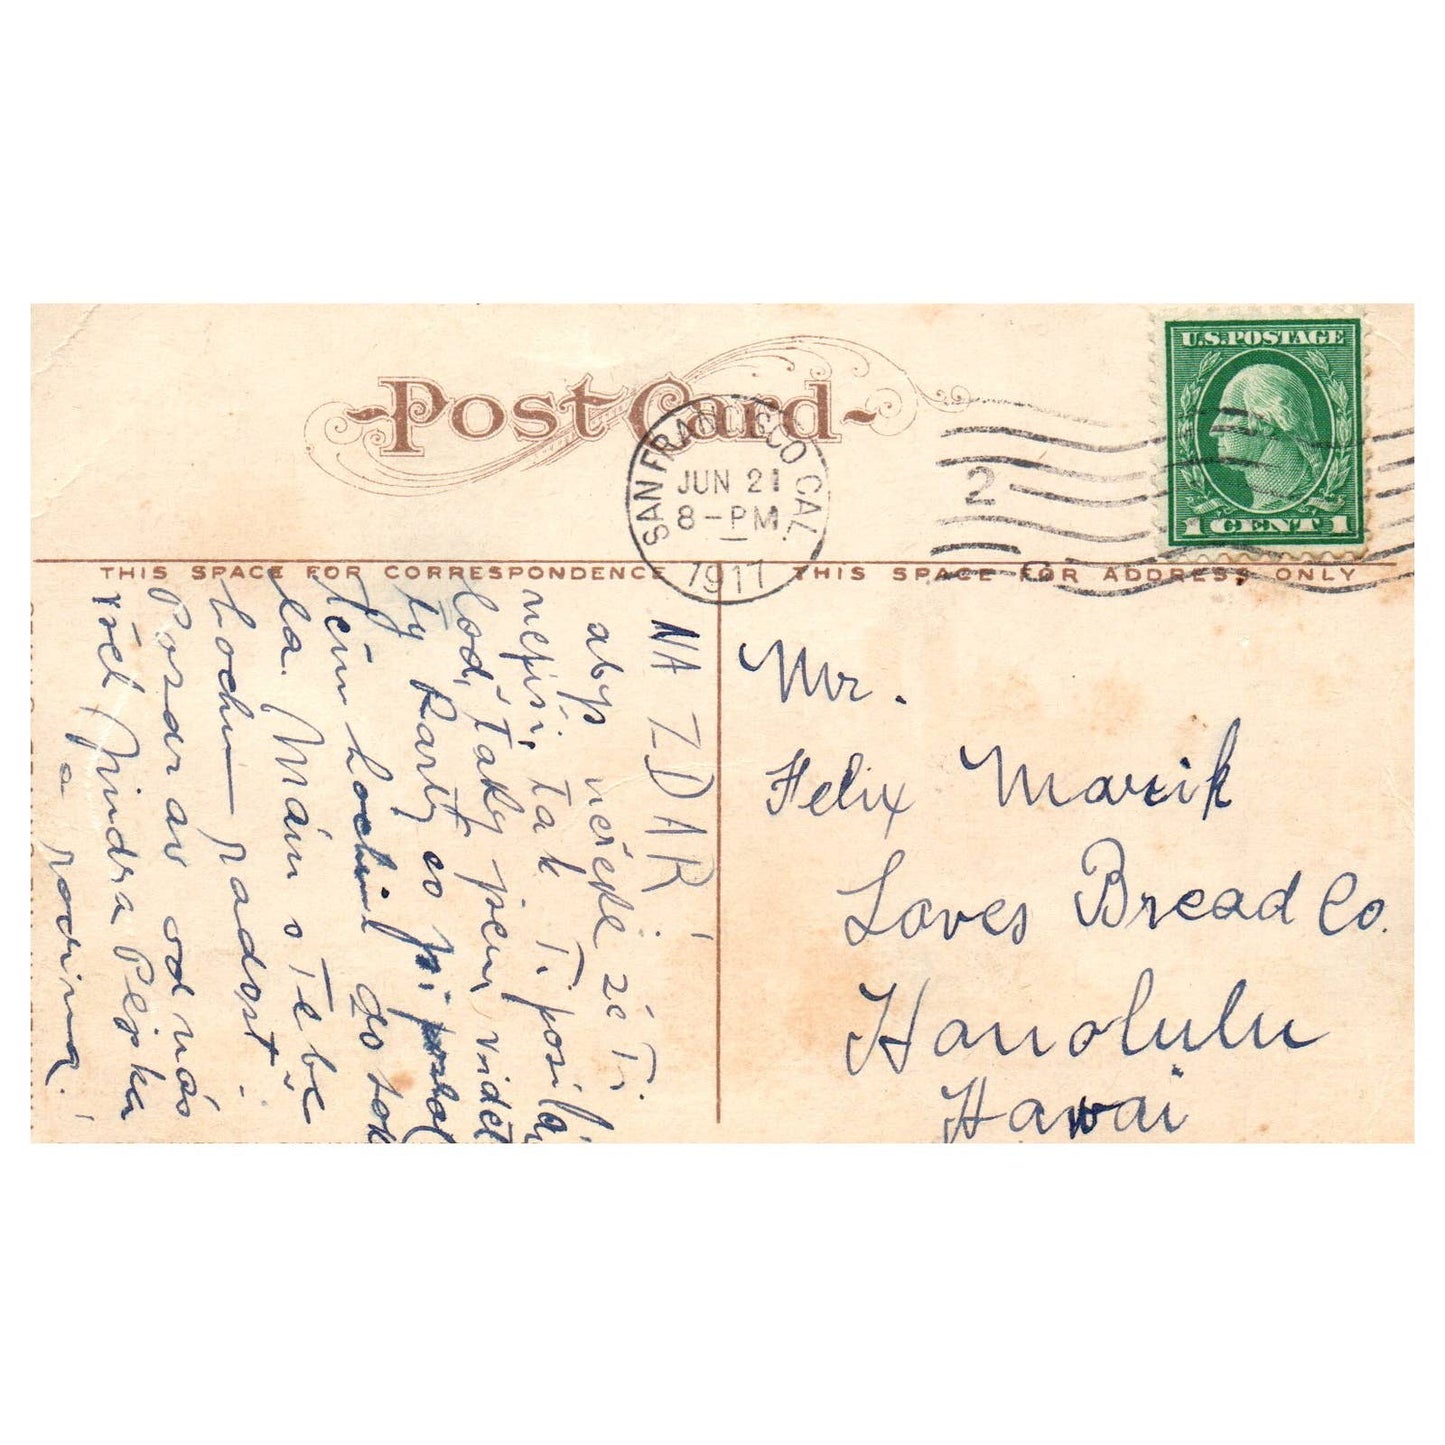 Post Card
SAN FRANCISCO CAL.
JUN 21
8-PM
1917
2
U.S. POSTAGE
1 CENT 1
THIS SPACE FOR CORRESPONDENCE
THIS SPACE FOR ADDRESS ONLY
NA ZDAR
abys neřekl že Ti
nepíši, tak Ti posílá
loď, taky jsem viděl
ty Karty co si poslal
těm Hochům do Sok
la. Mám s Tebe
hochu radost.
Pozdrav od nás
všel Jindra Pejska
a rodina.
Mr.
Felix Marik
Loves Bread Co.
Honolulu
Hawai